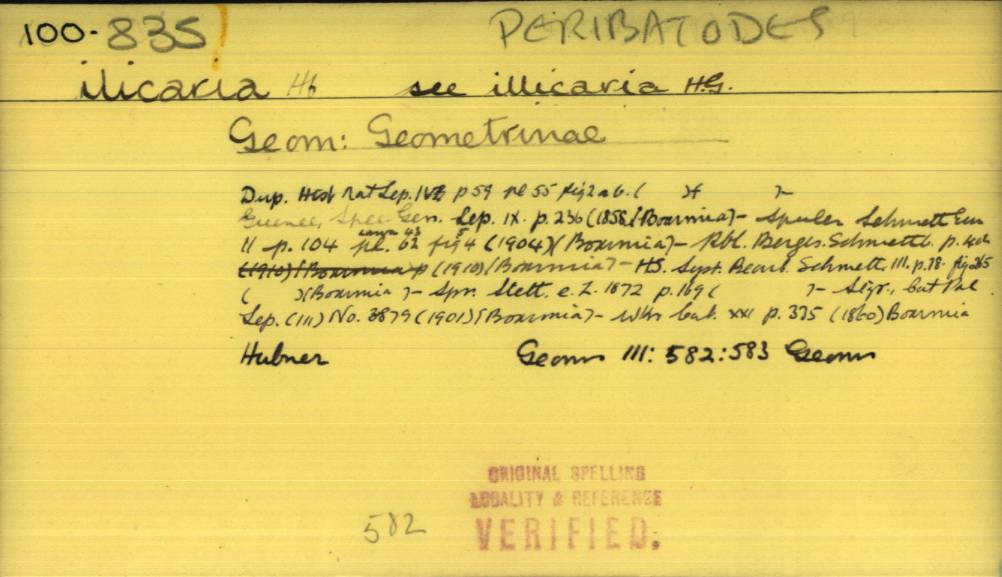 100-835 PERIBATODES
ilicaria Hb see illicaria H.G.
Geom: Geometrinae
Dup. Hist Nat Lep. p 59 pl 55 fig 2 a b. ( )( )-
Guenee, Spec Gen. Lep. IX. p. 236 (1858) (Boarmia) - Spuler Schmett Eur
II p. 104 pl. 62 fig 4 (1904) (Boarmia) - Rbl. Berges. Schmettb. p.
(1910) (Boarmia p (1910) (Boarmia) - HS. Syst. Bearb. Schmett. III. p. 78. fig
( )(Boarmia ) - Spr. Stett. e. Z. 1872 p. 169 ( ) - Stgr., Cat Pal.
Lep. (III) No. 3879 (1901) (Boarmia) - Wlkr Cat. XXI p. 335 (1860) Boarmia
Hubner Geom III: 582:583 Geom
582
ORIGINAL SPELLING
LOCALITY & REFERENCE
VERIFIED.